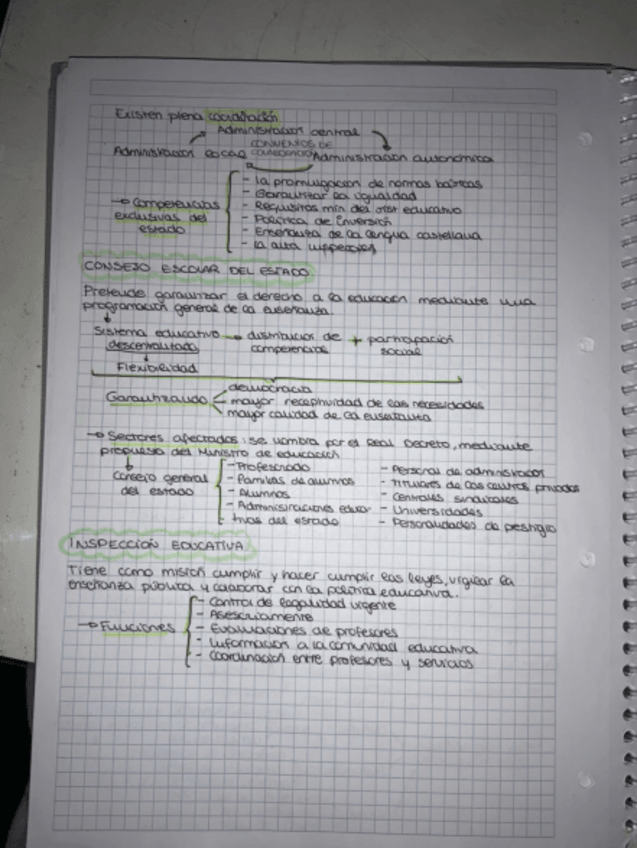 Existen plena coordinación
Administración central
CONVENIOS DE
Administración local COLABORACIÓN Administración autonómica
- La promulgación de normas básicas
- Garantizar la igualdad
→ Competencias - Requisitos min del sist educativo
exclusivas del - Política de inversión
estado - Enseñanza de la lengua castellana
- La alta inspección
CONSEJO ESCOLAR DEL ESTADO
Pretende garantizar el derecho a la educación mediante una
programación general de la enseñanza.
Sistema educativo → distribución de + participación
descentralizado competencias social
Flexibilidad
democracia
Garantizando mayor receptividad de las necesidades
mayor calidad de la enseñanza
→ Sectores afectados: se nombra por el Real Decreto, mediante
propuesta del Ministro de educación
- Profesorado - Personal de administración
Consejo general - Familias de alumnos - Titulares de los centros privados
del estado - Alumnos - Centrales sindicales
- Administraciones educa - Universidades
tivas del estado - Personalidades de prestigio
INSPECCIÓN EDUCATIVA
Tiene como misión cumplir y hacer cumplir las leyes, vigilar la
enseñanza pública y colaborar con la política educativa.
- Control de legalidad vigente
- Asesoramiento
→ Funciones - Evaluaciones de profesores
- Información a la comunidad educativa
- Coordinación entre profesores y servicios